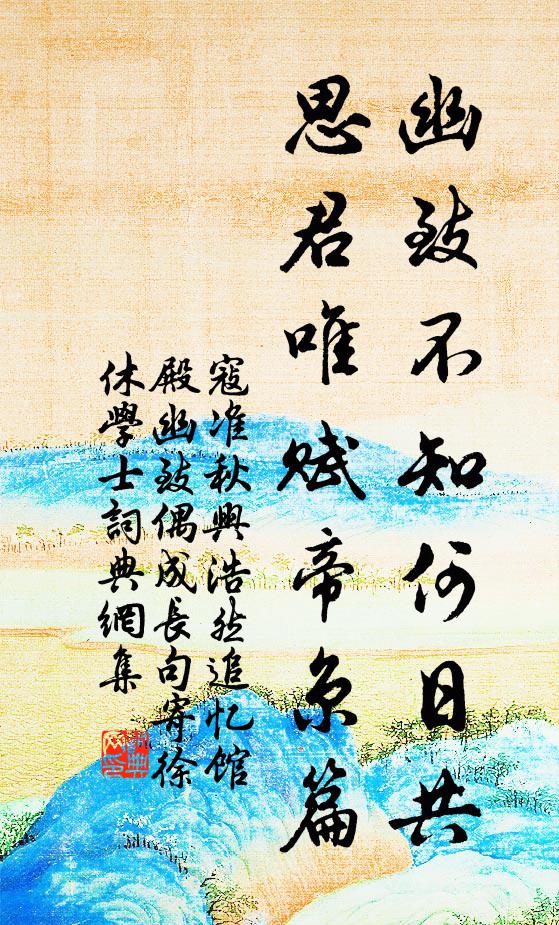 幽致不知何日共
思君唯赋帝京篇
寇准秋興浩然追忆馆
殿幽致偶成長句寄徐
休學士詞典網集